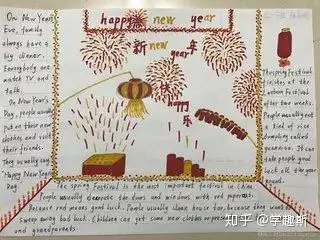 happy new year
On New Year's
Eve, family
always have a
big dinner.
Everybody are
watch TV and
talk.
On New Year's
Day, people usually
put on their new
clothes and visit
their friends.
They usually say
"Happy New Year's
Day.
新年
new
year
快
happy
乐
The spring Festival
finishes at the
Festival
after two weeks.
People usually eat
a kind of rice
dumpling called
It can
take people good
luck all the year
round.
The spring Festival is the most important festival in China.
People usually decorate the doors and windows with red papercuts.
Because red means good luck. People usually clean house too, because they want to
sweep away bad luck. Children can get some new clothes or presents
and grandparents
知乎 @学趣斯